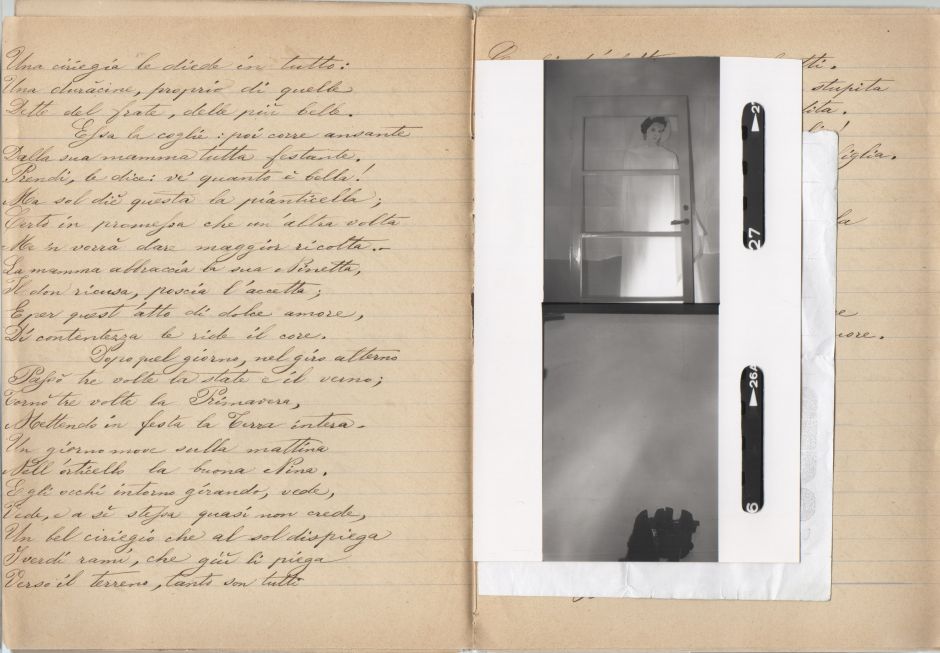 Una ciriegia le diede in tutto:
Una duracine, proprio di quelle
Dette del frate, delle più belle.
Essa la coglie: poi corre ansante
Dalla sua mamma tutta festante.
Prendi, le dice: ve' quanto è bella!
Ma sol diè questa la pianticella;
Certo in promessa che un'altra volta
Me 'n vorrà dare maggior ricolta.
La mamma abbraccia la sua Ninetta,
Il don ricusa, poscia l'accetta;
E per quest'atto di dolce amore,
Di contentezza le ride il core.
Dopo quel giorno, nel giro alterno
Passò tre volte la state e il verno;
Tornò tre volte la Primavera,
Mettendo in festa la Terra intera.
Un giorno move sulla mattina
Nell'orticello la buona Nina.
E gli occhi intorno girando, vede,
Vede, e a sè stessa quasi non crede,
Un bel ciriegio che al sol dispiega
I verdi rami, che giù li piega
Verso il terreno, tanto son tutti
stupita
27
27
26A
6